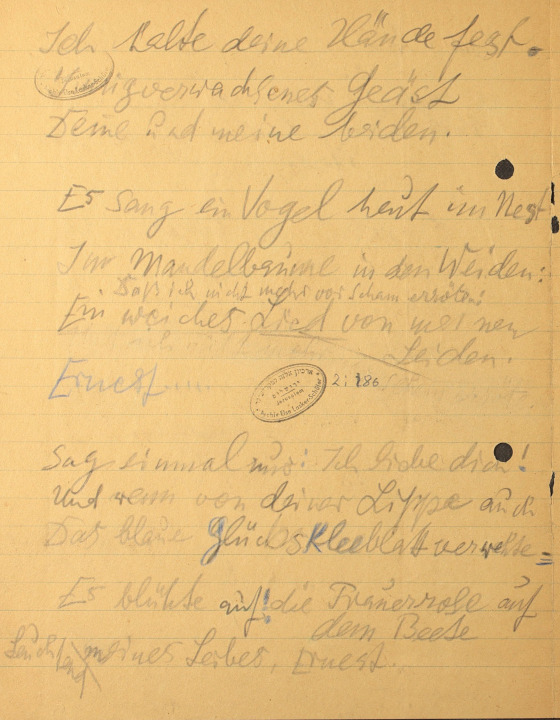 Ich halte deine Hände fest.
Engverwachsenes Geäst
Deine und meine beiden.
Es sang ein Vogel heut im Nest
Im Mandelbaume in den Weiden:
Daß ich nicht mehr vor Scham erröte:
Ein weiches Lied von meinen
Leiden.
Ernest
2:186
Jerusalem
Archiv Else Lasker-Schüler
Sag einmal nur: Ich liebe dich!
Und wenn von deiner Lippe auch
Das blaue Glückskleeblatt verwehte =
Es blühte auf! die Trauerrose auf
dem Beete
meines Leibes, Ernest.